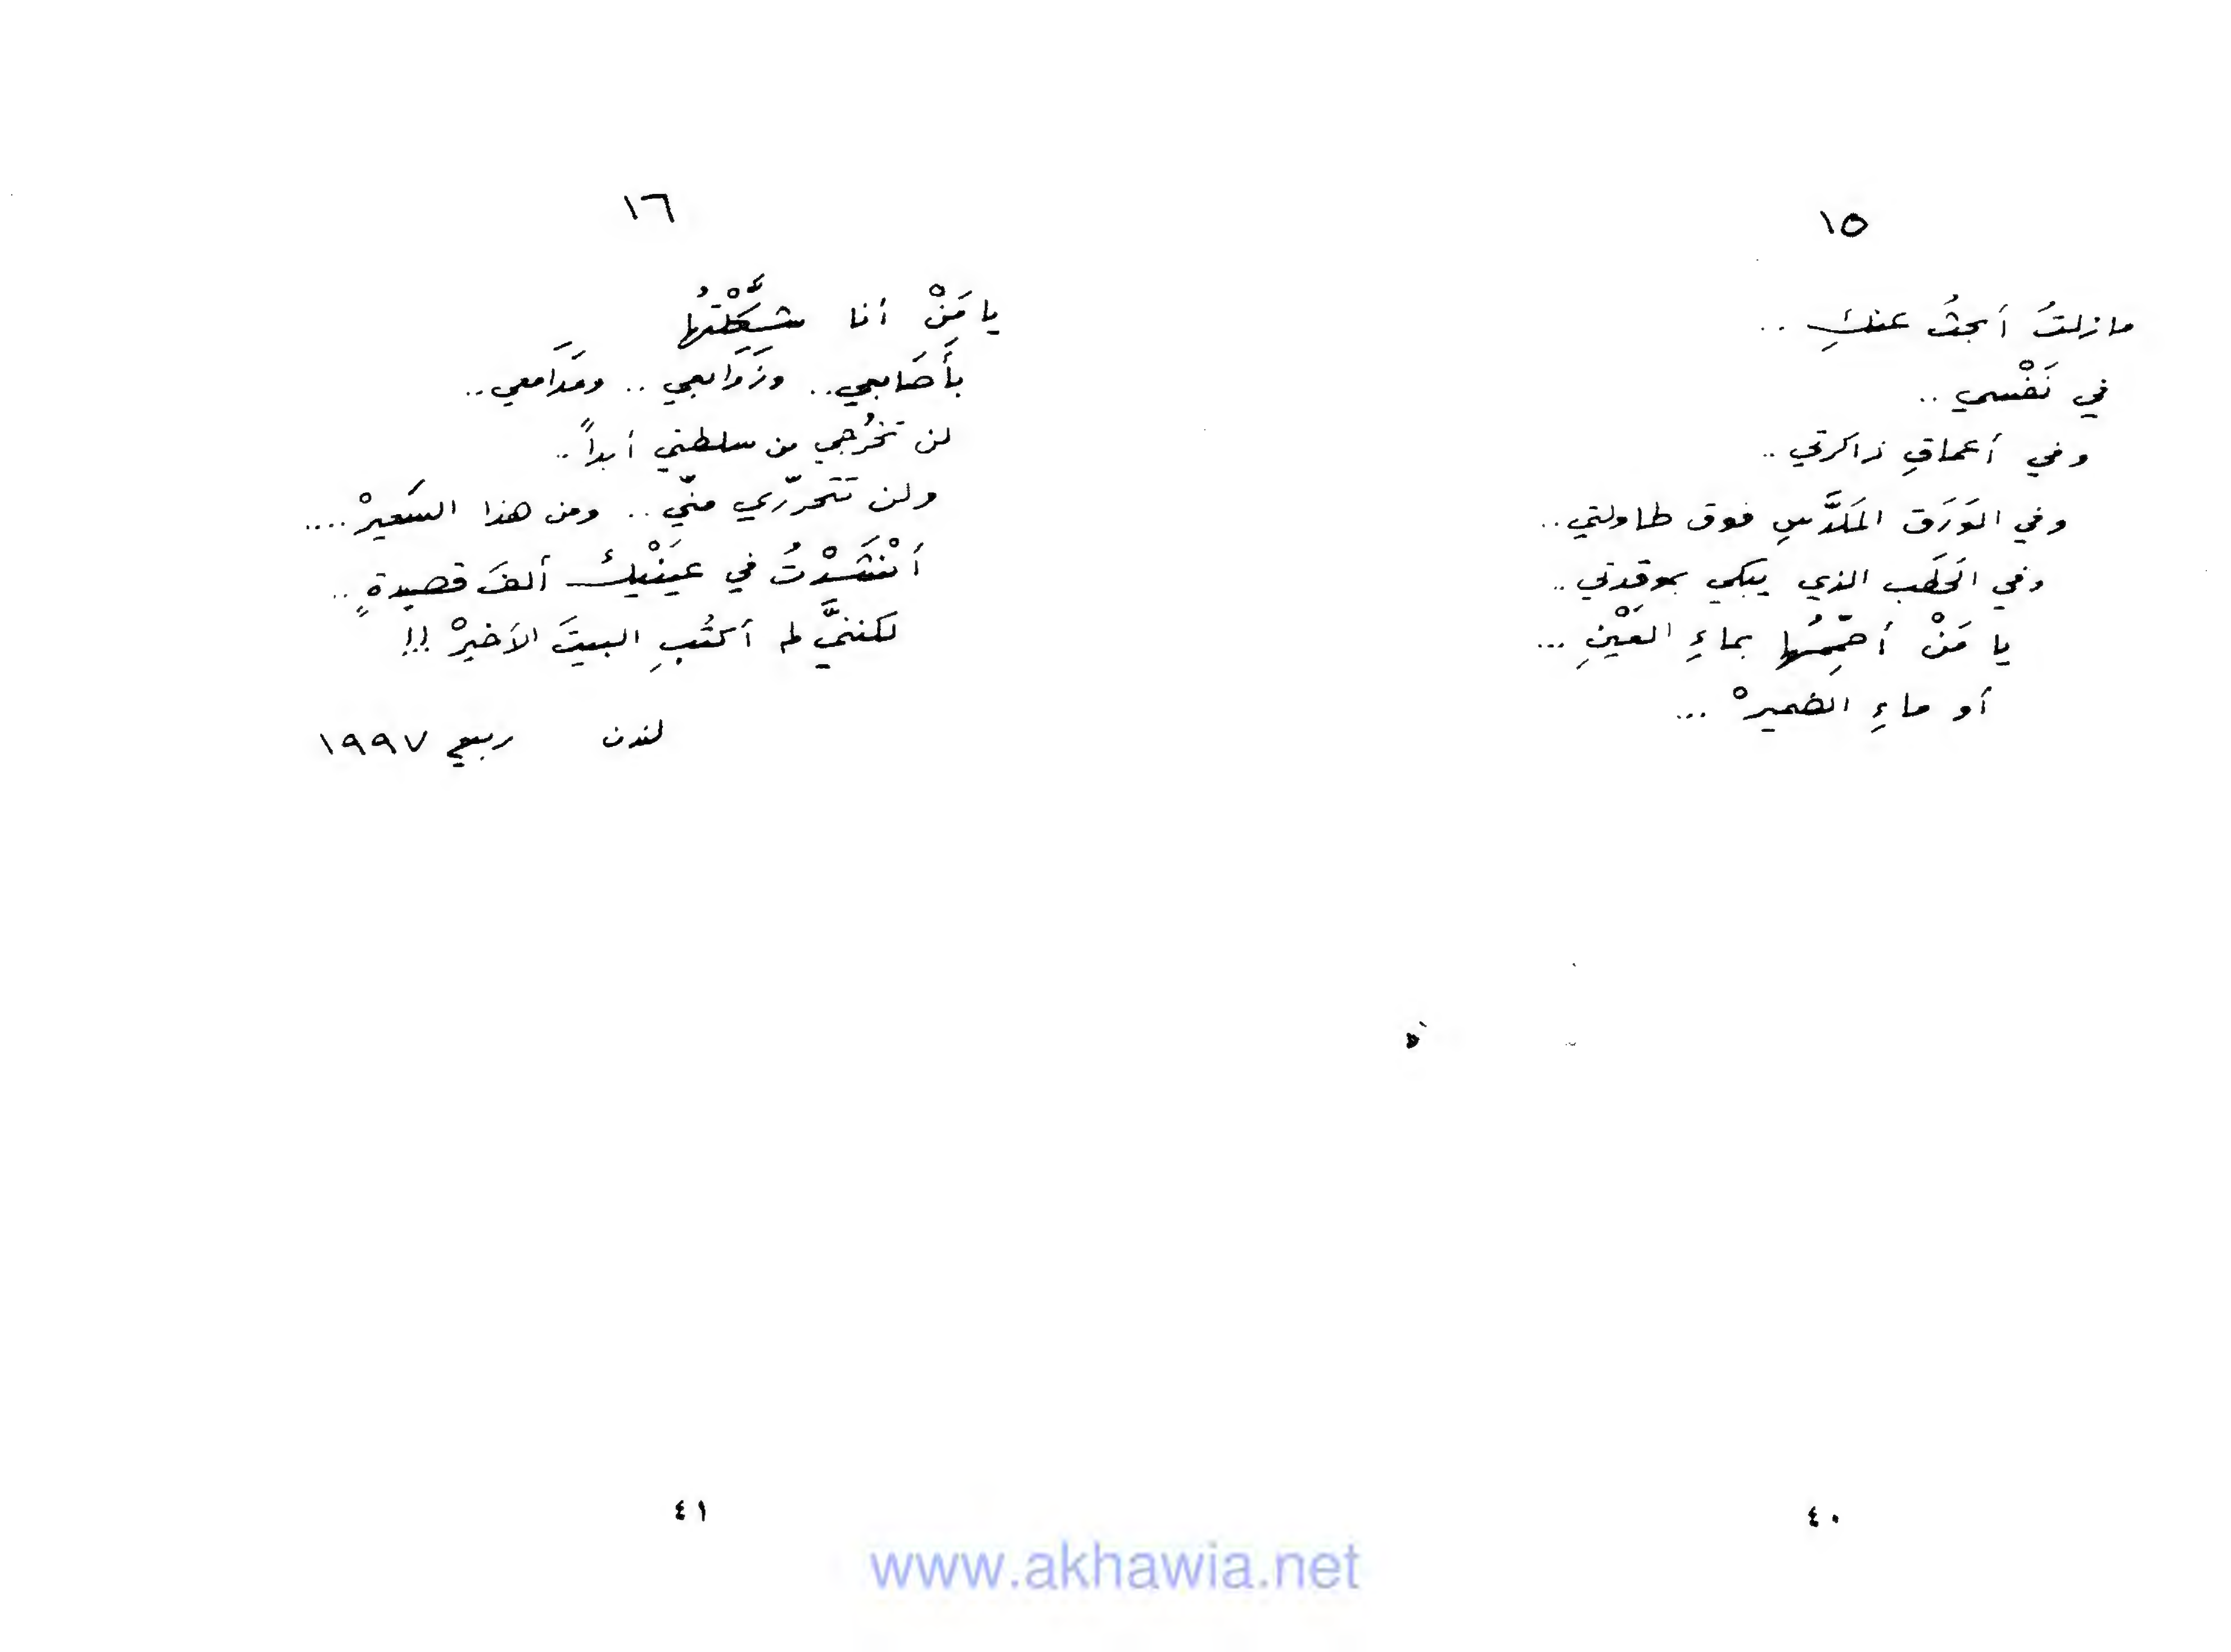 ١٥
مازلتُ أبحثُ عنكِ ..
في نَفْسي ..
وفي أعماقِ ذاكرتي ..
وفي الوَرَق المكَدَّسِ فوق طاولتي ..
وفي الحَطَب الذي يبكي بموقدتي ..
يا مَنْ أحمِّمُها بماءِ العَيْنِ ...
أو ماءِ الضميرْ ...
٤٠
١٦
يا مَنْ أنا شَكَّلْتُها
بأَصَابعي .. وزَوَابعي .. ومَدَامعي ..
لن تخرُجي من سلطتي أبداً ..
ولن تتحرّري منّي .. ومن هذا السَعيرْ ....
أَنْشَدْتُ في عَيْنَيْكِ ألفَ قصيدةٍ ..
لكننيَّ لم أكتُبِ البيتَ الأخيرْ !!
لندن ربيع ١٩٩٧
٤١
www.akhawia.net